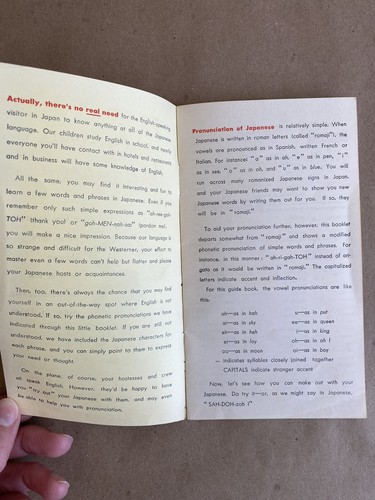 Actually, there's no real need for the English-speaking
visitor in Japan to know anything at all of the Japanese
language. Our children study English in school, and nearly
everyone you'll have contact with in hotels and restaurants
and in business will have some knowledge of English.
All the same, you may find it interesting and fun to
learn a few words and phrases in Japanese. Even if you
remember only such simple expressions as "ah-ree-gah-
TOH" (thank you) or "goh-MEN-nah-sai" (pardon me),
you will make a nice impression. Because our language is
so strange and difficult for the Westerner, your effort to
master even a few words can't help but flatter and please
your Japanese hosts or acquaintances.
Then, too, there's always the chance that you may find
yourself in an out-of-the-way spot where English is not
understood. If so, try the phonetic pronunciations we have
indicated through this little booklet. If you are still not
understood, we have included the Japanese characters for
each phrase, and you can simply point to them to express
your need or thought.
On the plane, of course, your hostesses and crew
all speak English. However, they'd be happy to have
you "try out" your Japanese with them, and may even
be able to help you with pronunciation.
Pronunciation of Japanese is relatively simple. When
Japanese is written in roman letters (called "romaji"), the
vowels are pronounced as in Spanish, written French or
Italian. For instance: "a" as in ah, "e" as in pen, "i"
as in see, "o" as in oh, and "u" as in blue. You will
run across many romanized Japanese signs in Japan,
and your Japanese friends may want to show you new
Japanese words by writing them out for you. If so, they
will be in "romaji."
To aid your pronunciation further, however, this booklet
departs somewhat from "romaji" and shows a modified
phonetic pronunciation of simple words and phrases. For
instance, in this manner: "ah-ri-gah-TOH" instead of ari-
gato as it would be written in "romaji." The capitalized
letters indicate accent and inflection.
For this guide book, the vowel pronunciations are like
this:
ah—as in hah u—as in put
ai—as in sky ee—as in queen
eh—as in heh i—as in king
ei—as in lay oh—as in oh!
oo—as in moon oi—as in boy
– indicates syllables closely joined together
CAPITALS indicate stronger accent
Now, let's see how you can make out with your
Japanese. Do try it—or, as we might say in Japanese,
"SAH-DOH-zoh!"